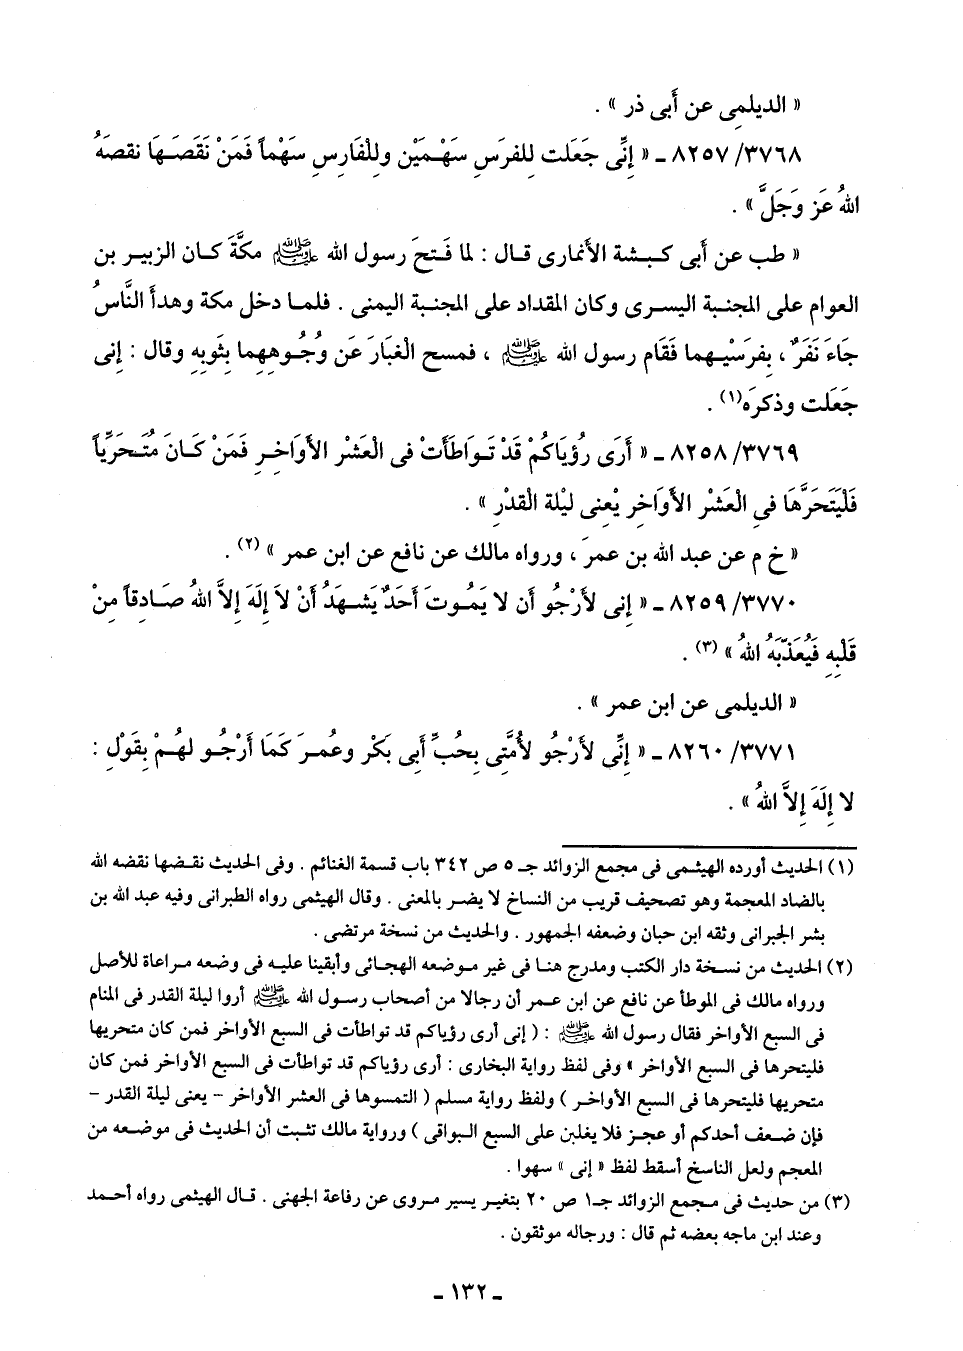 « الديلمِى عن أَبى ذر » .
٣٧٦٨/ ٨٢٥٧ ـ « إِنِّى جَعَلت لِلفرَسِ سَهْمَيْن وللْفَارِسِ سَهْماً فَمَنْ نَقَصَهَا نقصَهُ
اللهُ عَز وَجَلَّ » .
« طب عن أَبى كبشة الأنمارى قال : لما فَتحَ رسول الله ﷺ مكَّةَ كان الزبير بن
العوام على المجنبة اليسرى وكان المقداد على المجنبة اليمنى . فلما دخل مكة وهدأَ النَّاسُ
جَاءَ نَفَرٌ ، بِفرَسْيهما فَقَام رسول الله ﷺ ، فمسح الْغبَارَ عَن وُجُوههِما بِثَوبِهِ وقال : إِنى
جَعَلت وذكرَه(١) .
٣٧٦٩/ ٨٢٥٨ ـ « أَرَى رُؤيَاكُمْ قَدْ تَواطَأَتْ فى الْعَشْرِ الأَوَاخِرِ فَمَنْ كَانَ مُتَحَرِّياً
فَلْيَتَحَرَّهَا فِى الْعَشْرِ الأَوَاخِرِ يْعنِى ليْلة الْقدْرِ » .
« خ م عن عبد الله بن عمرَ ، ورواه مالك عن نافع عن ابن عمر » (٢) .
٣٧٧٠/ ٨٢٥٩ ـ « إِنى لأَرْجُو أَن لا يَمُوتَ أَحَدٌ يَشهدُ أَنْ لاَ إِلَهَ إِلاَّ اللهُ صَادِقاً مِنْ
قَلْبِهِ فَيُعَذّبَهُ اللهُ » (٣) .
« الديلمى عن ابن عمر » .
٣٧٧١/ ٨٢٦٠ ـ « إِنِّى لأَرْجُو لأُمَّتِى بِحُبِّ أَبِى بَكْرٍ وعُمرَ كَمَا أَرْجُو لهُمْ بِقَوْلِ :
لا إِلَهَ إِلاَّ اللهُ » .
(١) الحديث أورده الهيثمى فى مجمع الزوائد جـ ٥ ص ٣٤٢ باب قسمة الغنائم . وفى الحديث نقضها نقضه الله
بالضاد المعجمة وهو تصحيف قريب من النساخ لا يضر بالمعنى . وقال الهيثمى رواه الطبرانى وفيه عبد الله بن
بشر الجبرانى وثقه ابن حبان وضعفه الجمهور . والحديث من نسخة مرتضى .
(٢) الحديث من نسخة دار الكتب ومدرج هنا فى غير موضعه الهجائى وأبقينا عليه فى وضعه مراعاة للأصل
ورواه مالك فى الموطأ عن نافع عن ابن عمر أن رجالا من أصحاب رسول الله ﷺ أروا ليلة القدر فى المنام
فى السبع الأواخر فقال رسول الله ﷺ : ( إنى أرى رؤياكم قد تواطأت فى السبع الأواخر فمن كان متحريها
فليتحرها فى السبع الأواخر » وفى لفظ رواية البخارى : أرى رؤياكم قد تواطأت فى السبع الأواخر فمن كان
متحريها فليتحرها فى السبع الأواخر ) ولفظ رواية مسلم ( التمسوها فى العشر الأواخر – يعنى ليلة القدر –
فإن ضعف أحدكم أو عجز فلا يغلبن على السبع البواقى ) ورواية مالك تثبت أن الحديث فى موضعه من
المعجم ولعل الناسخ أسقط لفظ « إنى » سهوا .
(٣) من حديث فى مجمع الزوائد جـ١ ص ٢٠ بتغير يسير مروى عن رفاعة الجهنى . قال الهيثمى رواه أحمد
وعند ابن ماجه بعضه ثم قال : ورجاله موثقون .
ـ ١٣٢ ـ